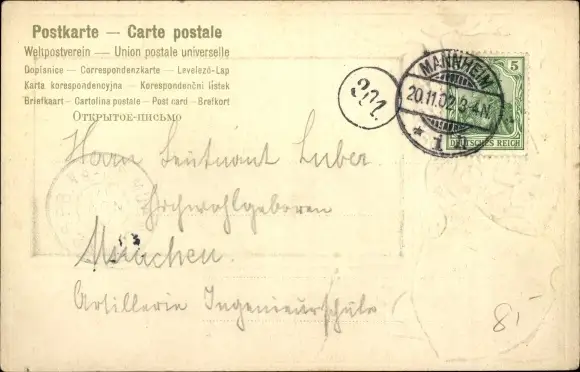 Postkarte — Carte postale
Weltpostverein — Union postale universelle
Dopisnice — Correspondenzkarte — Levelező-Lap
Karta korespondencyjna — Korespondenční lístek
Briefkaart — Cartolina postale — Post card — Brefkort
Открытое-письмо
MANNHEIM
20.11.02. 3-4.N
* 1
5
DEUTSCHES REICH
Herrn Leutnant Luber
Hochwohlgeboren
München.
Artillerie Ingenieurschule
8,-